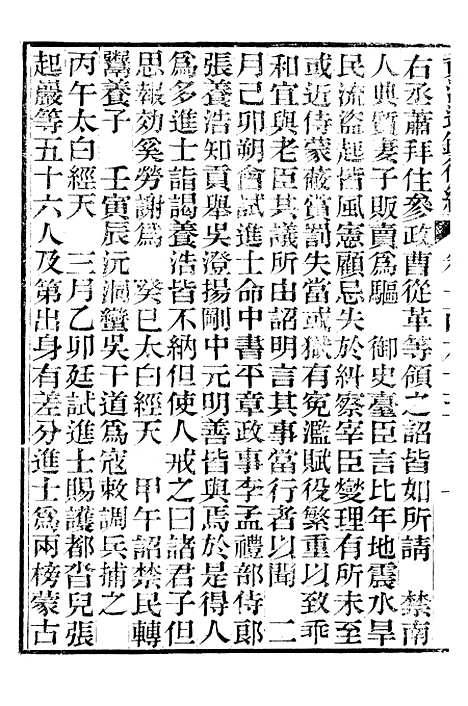 右丞蕭拜住參政曹從革等領之詔皆如所請　禁南
人典質妻子販賣爲驅　御史臺臣言比年地震水旱
民流盜起皆風憲顧忌失於糾察宰臣燮理有所未至
或近侍蒙蔽賞罰失當或獄有寃濫賦役繁重以致乖
和宜與老臣共議所由詔明言其事當行者以聞　二
月己卯朔會試進士命中書平章政事李孟禮部侍郎
張養浩知貢舉吳澄揚剛中元明善皆與焉於是得人
爲多進士詣謁養浩皆不納但使人戒之曰諸君子但
思報効奚勞謝爲　癸巳太白經天　甲午詔禁民轉
鬻養子　壬寅辰沅洞蠻吳干道爲寇敕調兵捕之
丙午太白經天　三月乙卯廷試進士賜護都沓兒張
起巖等五十六人及第出身有差分進士爲兩榜蒙古